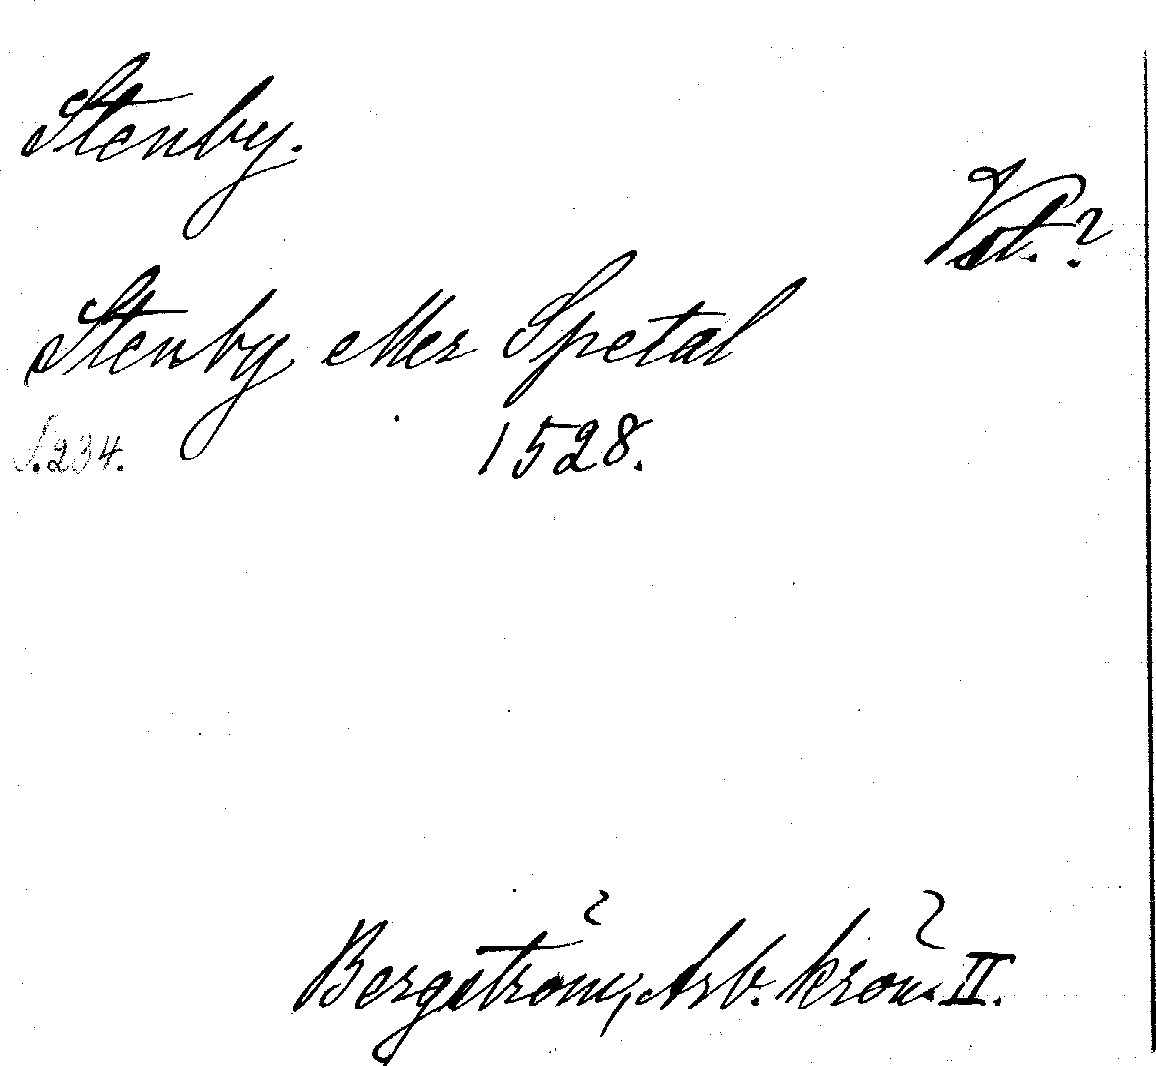 Stenby.
Vst.?
Stenby eller Spetal
S. 234.
1528.
Bergström, Arb. krön. II.